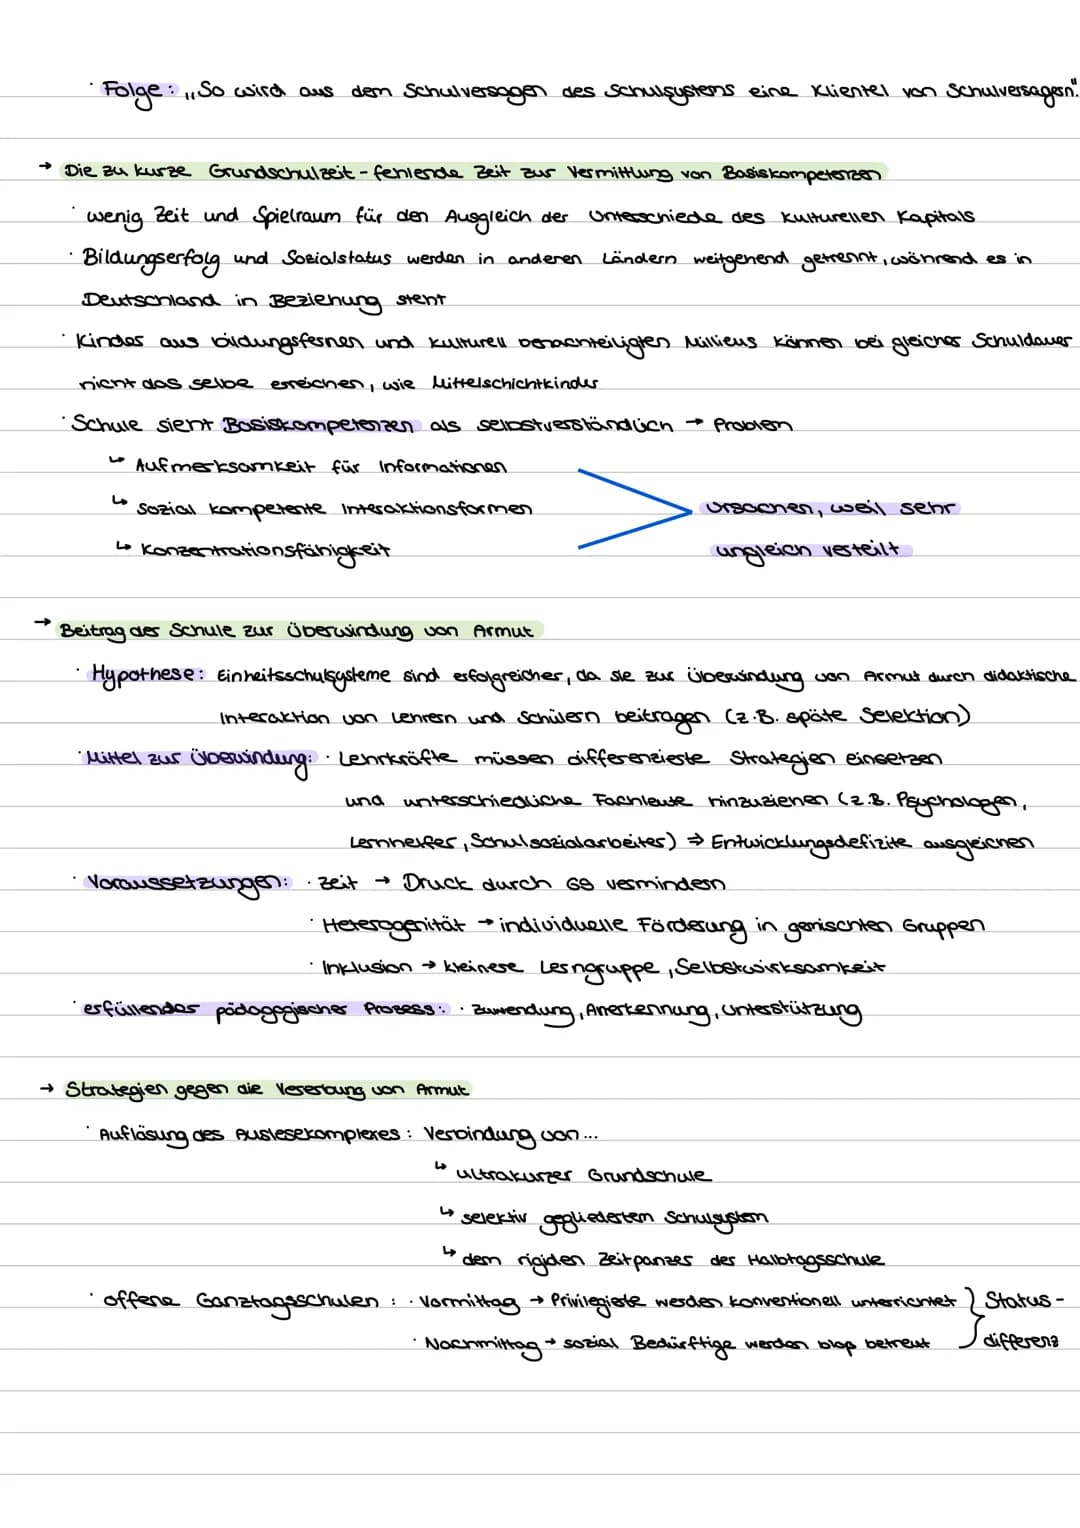 · Folge: „So wird aus dem Schulversagen des Schulsystems eine Klientel von Schulversagern".
→ Die zu kurze Grundschulzeit - fehlende Zeit zur Vermittlung von Basiskompetenzen
· wenig Zeit und Spielraum für den Ausgleich der Unterschiede des kulturellen Kapitals
· Bildungserfolg und Sozialstatus werden in anderen Ländern weitgehend getrennt, während es in
Deutschland in Beziehung steht
· Kinder aus bildungsfernen und kulturell benachteiligten Millieus können bei gleicher Schuldauer
nicht das selbe erreichen, wie Mittelschichtkinder
· Schule sieht Basiskompetenzen als selbstverständlich → Problem
↳ Aufmerksamkeit für Informationen
↳ sozial kompetente Interaktionsformen
↳ Konzentrationsfähigkeit
Ursachen, weil sehr
ungleich verteilt
→ Beitrag der Schule zur Überwindung von Armut
· Hypothese: Einheitsschulsysteme sind erfolgreicher, da sie zur Überwindung von Armut durch didaktische
Interaktion von Lehrern und Schülern beitragen (z.B. späte Selektion)
· Mittel zur Überwindung: · Lehrkräfte müssen differenzierte Strategien einsetzen
und unterschiedliche Fachleute hinzuziehen (z.B. Psychologen,
Lernhelfer, Schulsozialarbeiter) ⇒ Entwicklungsdefizite ausgleichen
· Voraussetzungen: · Zeit → Druck durch G8 vermindern
· Heterogenität → individuelle Förderung in gemischten Gruppen
· Inklusion → kleinere Lerngruppe, Selbstwirksamkeit
· erfüllender pädagogischer Prozess: · Zuwendung, Anerkennung, Unterstützung
→ Strategien gegen die Vererbung von Armut
· Auflösung des Auslesekomplexes: Verbindung von...
↳ ultrakurzer Grundschule
↳ selektiv gegliedertem Schulsystem
↳ dem rigiden Zeitpanzer der Halbtagsschule
· offene Ganztagsschulen: · Vormittag → Privilegierte werden konventionell unterrichtet } Status-
· Nachmittag → sozial Bedürftige werden bloß betreut differenz